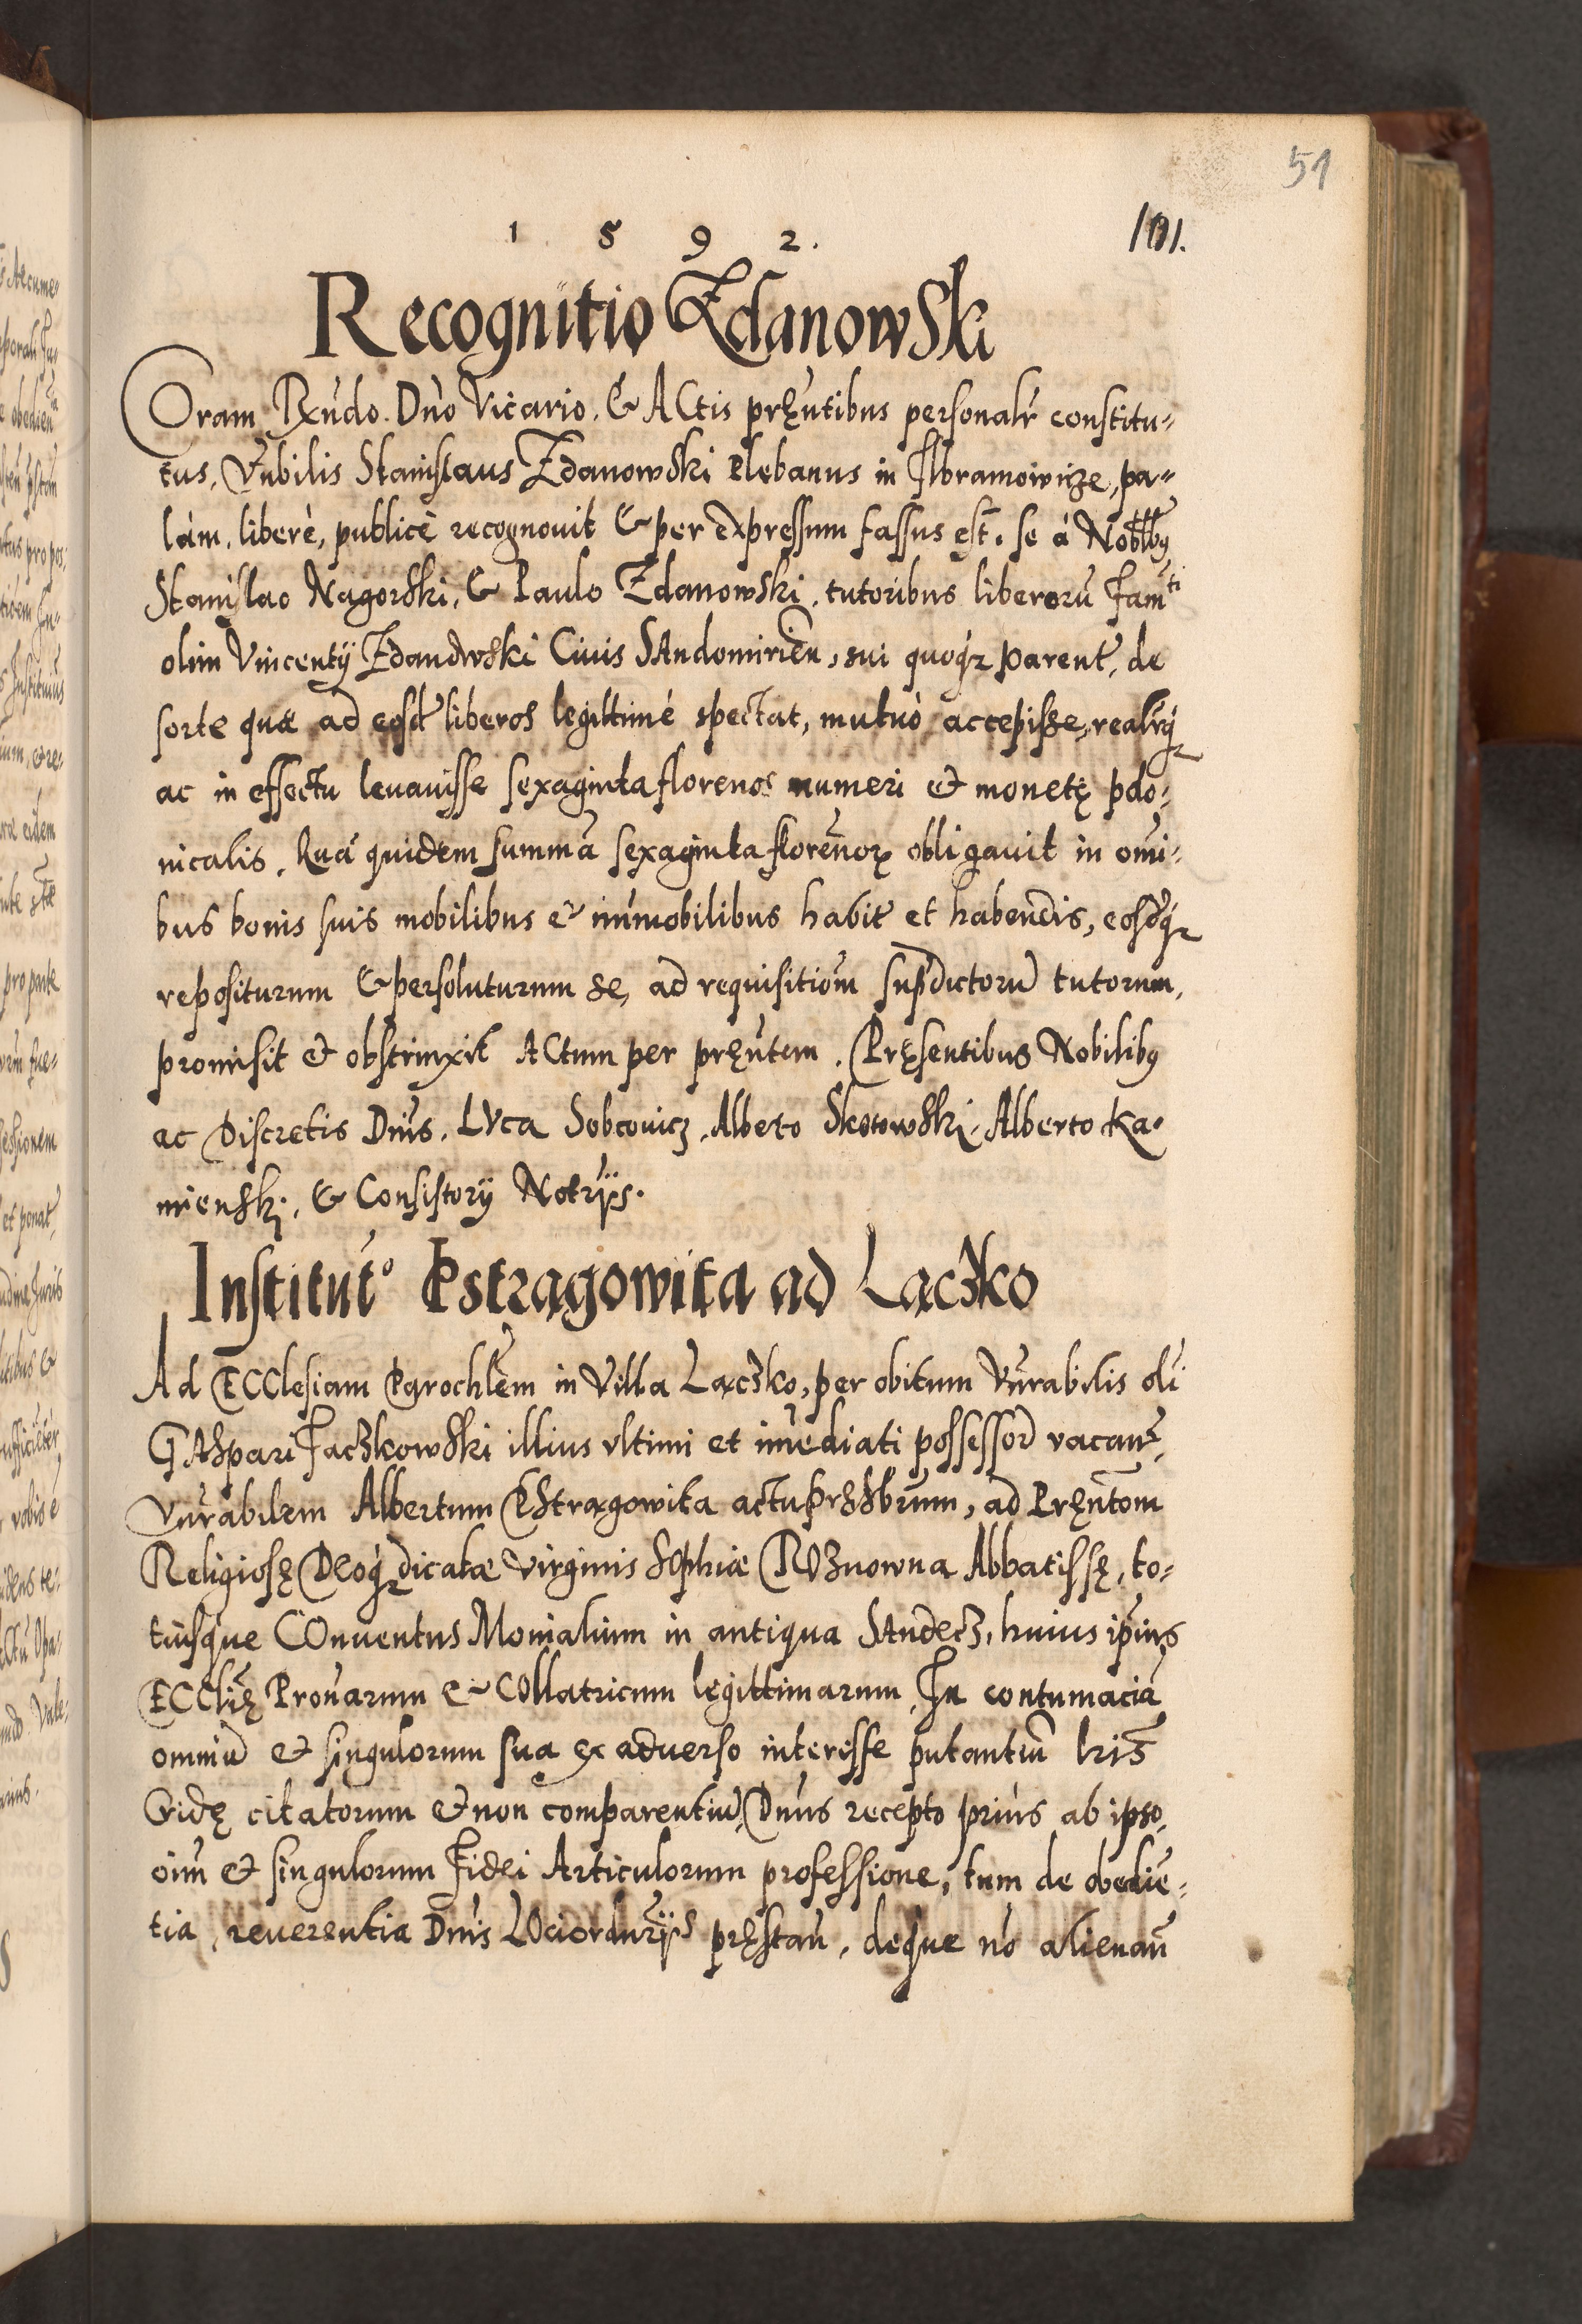 51
1 5 9 2. 101.
Recognitio Zdanowski
Coram Rndo. Dno Vicario. & Actis pręntibus personalr constitu-
tus, Vnbilis Stanislaus Zdanowski Plebanus in Abramowicze, pa-
làm, liberè, publicè recognovit & per expressum fassus est. se à Nobilibꝫ
Stanislao Nagorski, & Paulo Zdanowski, tutoribus liberorū Famti
olim Vincentÿ Zdanowski Ciuis Sandomirień, sui quoqꝫ parent, de
sorte quæ ad eosd liberos legittimè spectat, mutuò accepisse, realrqꝫ
ac in effectu leuauisse sexaginta florenos numeri et monetę pdo-
nicalis. Quā quidem summā sexaginta florenoꝝ obligauit in omi-
bus bonis suis mobilibus & immobilibus habit et habendis, eosdqꝫ
repositurum & persoluturum se, ad requisitiom supdictorū tutorum,
promisit et obstrinxit Actum per pręntem. Pręsentibus Nobilibꝫ
ac Discretis Dnis. Lvca Sobcouicz, Alberto Skotowski, Alberto Ka-
mienski, & Consistorÿ Notrÿs.
Institut° Pstragowita ad Lączko
Ad Ecclesiam Parochlem in Villa Lączko, per obitum Vnrabilis oli
Gaspari Jaczkowski illius vltimi et imediati possessor vacant,
Vnrabilem Albertum Pstragowita actu prsbrum, ad Pręntom
Religiosę Deoqꝫ dicatæ Virginis Sophiæ Roznowna Abbatissę, to-
tiusque Conuentus Monialium in antiqua Sandecz, huius ipius
Ecclię Pronarum & Collatricum legittimarum, In contumaciā
omniū et singulorum sua ex aduerso interesse putantiū lris
Cridę citatorum et non comparentiū, Dnus recepto prius ab ipso,
oim et singulorum Fidei Articulorum professione, tum de obedie-
tia, reuerentia Dnis Lociordnrÿs pręstań, deque nō alienań